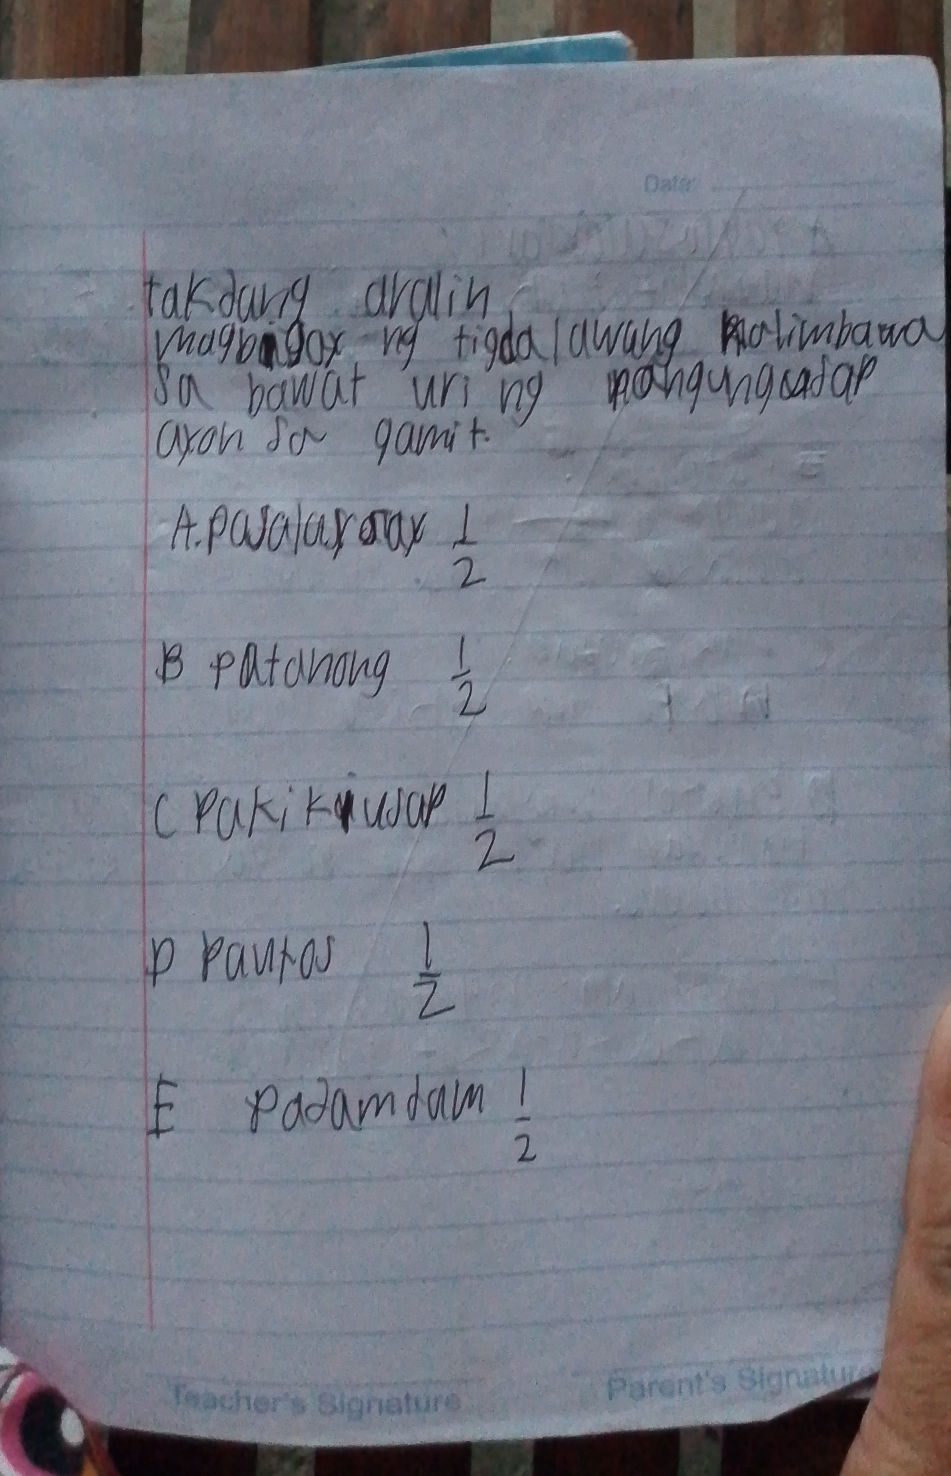 Date:
takdang aralin
magbigay ng tigdalawang halimbawa
sa bawat uri ng pangungusap
ayon sa gamit.
A. pasalaysay 1
2
B patanong 1
2
C Pakikiusap 1
2
D Pautos 1
2
E padamdam 1
2
Teacher's Signature Parent's Signature